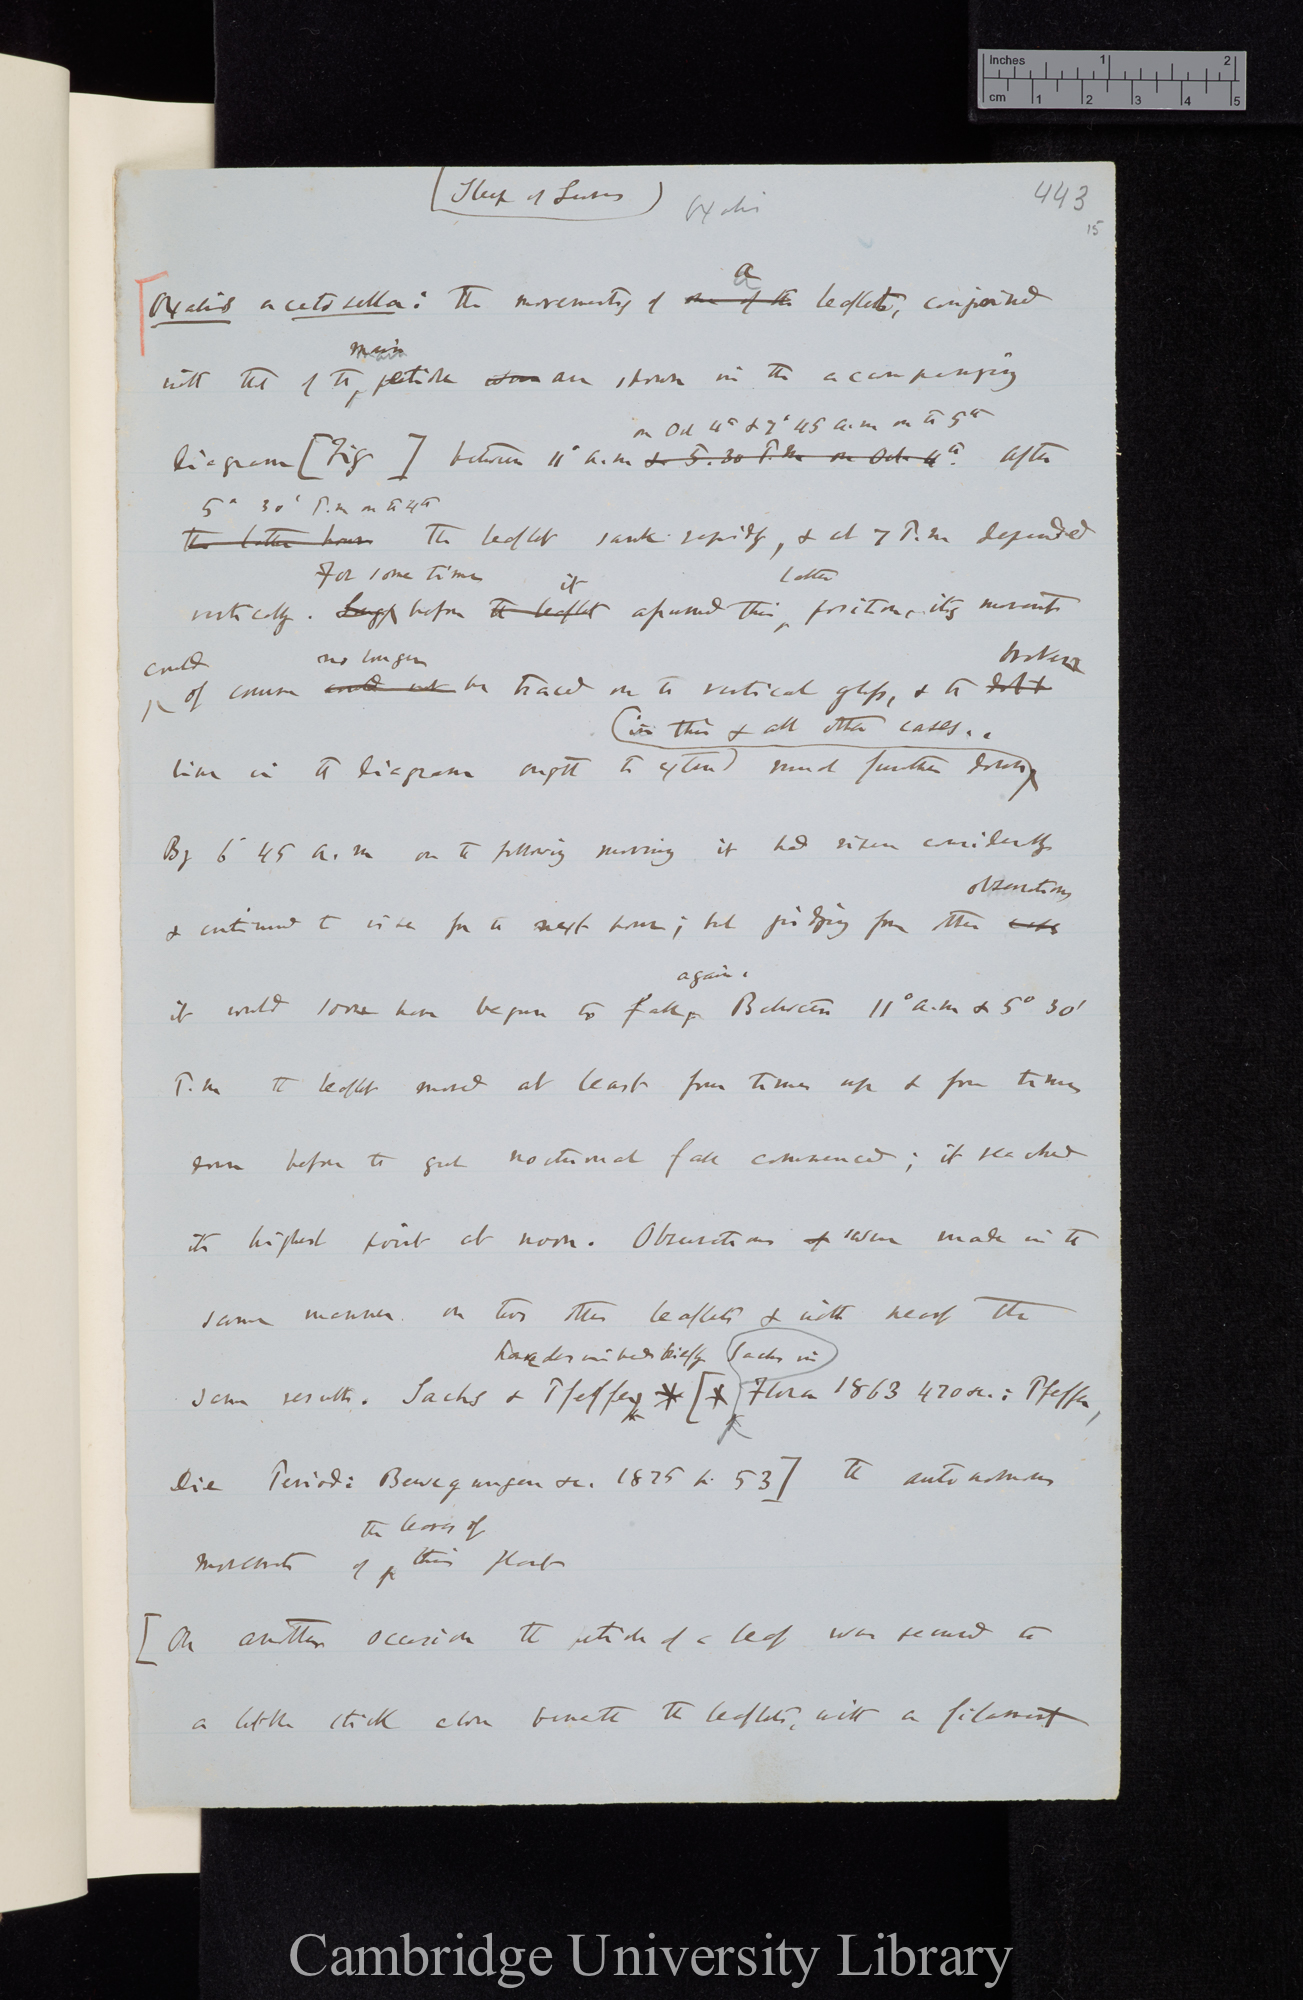 Inches 1 2
cm 1 2 3 4 5
(Sleep of Leaves) Oxalis 443
15
a
Oxalis acetosella: the movements of one of the leaflets, conjoined
main
with that of the petiole are shown in the accompanying
on Oct 4th & 7° 45 a.m on the 5th
diagram [Fig ] between 11° a.m & 5.30 P.m on Oct. 4th. After
5° 30' P.m on the 4th
the latter hour the leaflet sank rapidly, & at 7 P.m depended
For some time it latter
vertically. Long before the leaflet assumed this position, its movements
could no longer broken
of course could not be traced on the vertical glass, & the
(in this & all other cases..
line in the diagram ought to extend much further down
By 6 45 a.m on the following morning it had risen considerably
observations
& continued to rise for the next hour; but judging from other
again.
it would soon have begun to fall. Between 11° a.m & 5° 30'
P.m the leaflet moved at least four times up & four times
down before the great nocturnal fall commenced; it reached
its highest point at noon. Observations were made in the
same manner on two other leaflets & with nearly the
have described briefly Sachs in
same results. Sachs & Pfeffer * [* Flora 1863 470 &c.: Pfeffer,
Die Period: Bewegungen &c. 1875 p. 53] the autonomous
the leaves of
movements of this plant
[On another occasion the petiole of a leaf was secured to
a little stick close beneath the leaflets, with a filament
Cambridge University Library